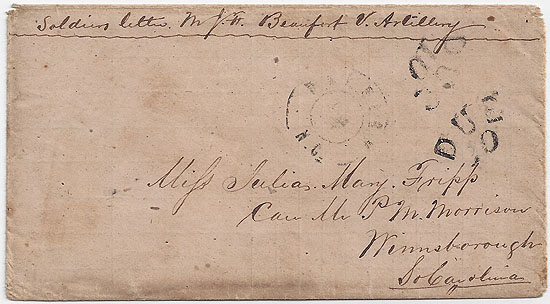 Soldiers letter M J. F. Beaufort V. Artillery
DUE
10
Miss Julia Mary Fripp
Care Mr P. M. Morrison
Winnsborough
So Carolina